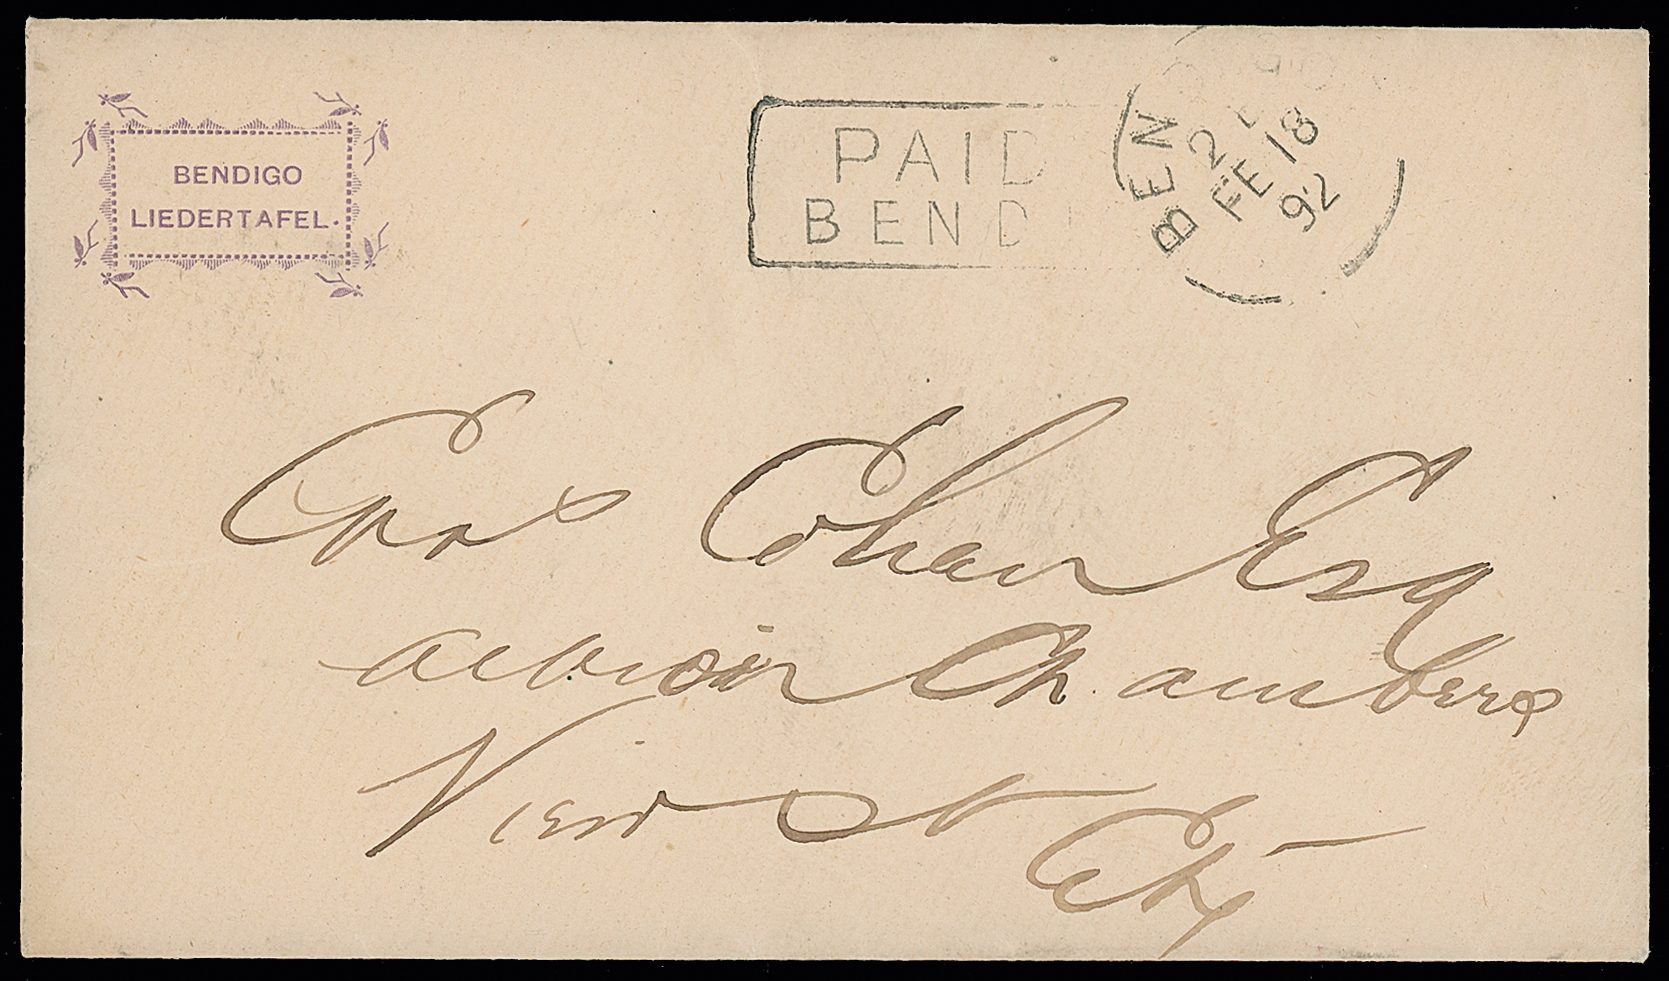 BENDIGO
LIEDERTAFEL.
PAID
BEND
BEN
2
FE 18
92
Cohen Esq
Albion Chambers
View St
City